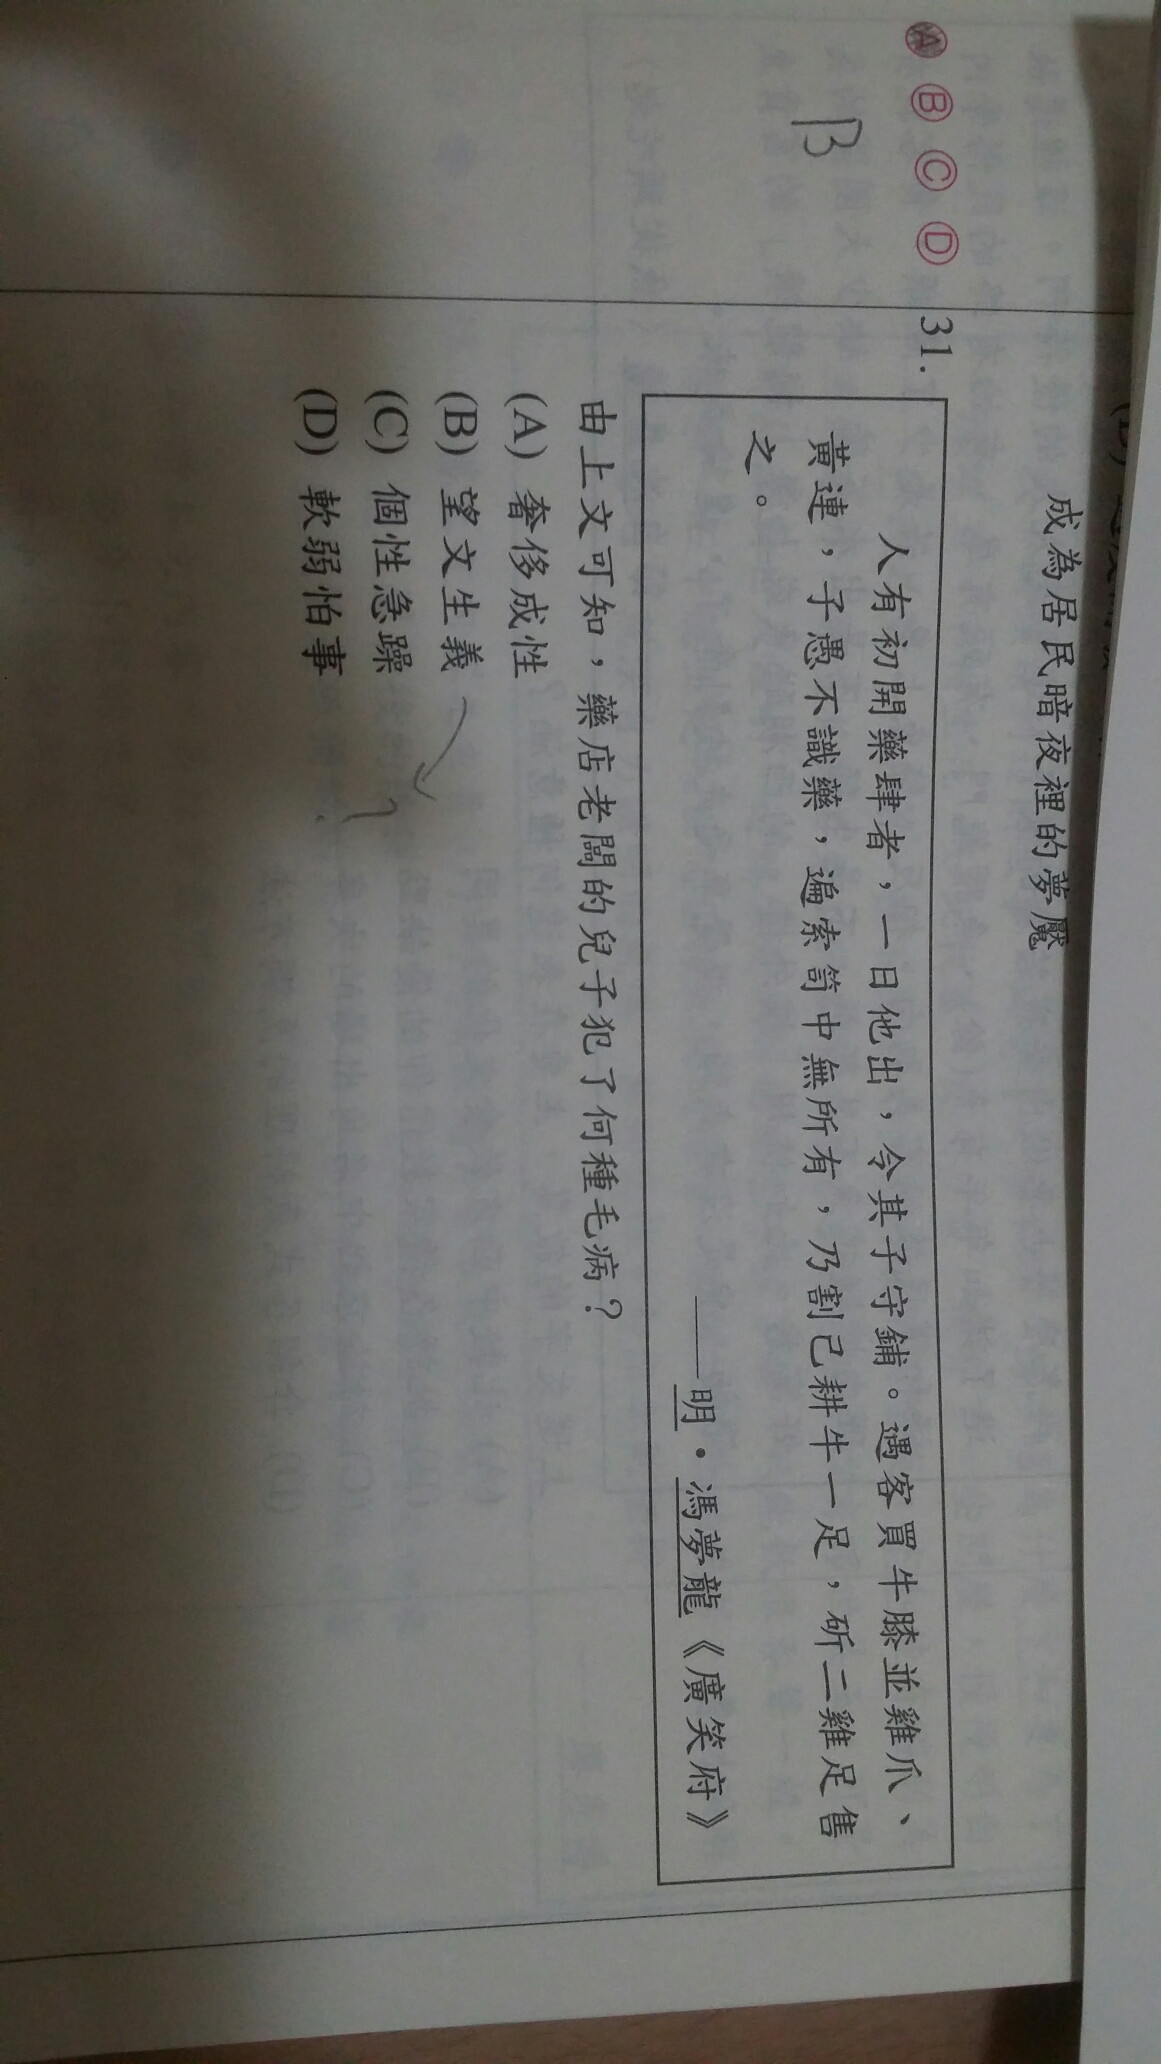 成為居民暗夜裡的夢魘
Ⓐ Ⓑ Ⓒ Ⓓ
B
31.
人有初開藥肆者，一日他出，令其子守鋪。遇客買牛膝並雞爪、
黃連，子愚不識藥，遍索笥中無所有，乃割己耕牛一足，斫二雞足售
之。
——明・馮夢龍《廣笑府》
由上文可知，藥店老闆的兒子犯了何種毛病？
(A) 奢侈成性
(B) 望文生義
(C) 個性急躁
(D) 軟弱怕事